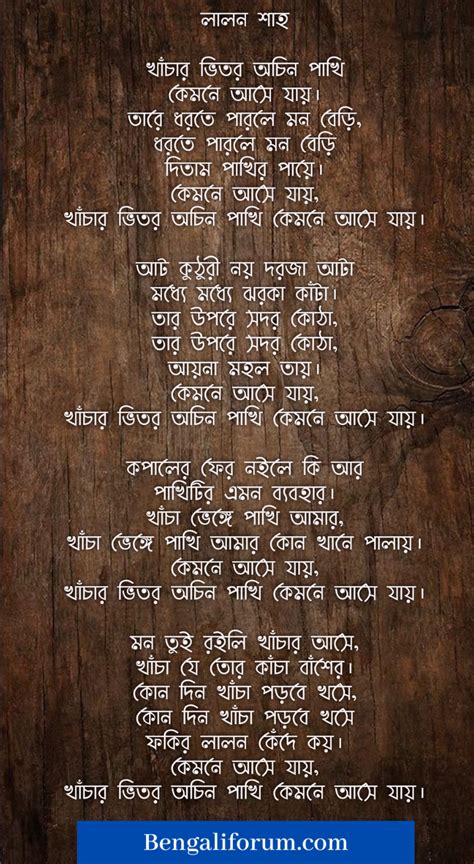 লালন শাহ
খাঁচার ভিতর অচিন পাখি
কেমনে আসে যায়।
তারে ধরতে পারলে মন বেড়ি,
ধরতে পারলে মন বেড়ি
দিতাম পাখির পায়ে।
কেমনে আসে যায়,
খাঁচার ভিতর অচিন পাখি কেমনে আসে যায়।
আট কুঠুরী নয় দরজা আটা
মধ্যে মধ্যে ঝরকা কাঁটা।
তার উপরে সদর কোঠা,
তার উপরে সদর কোঠা,
আয়না মহল তায়।
কেমনে আসে যায়,
খাঁচার ভিতর অচিন পাখি কেমনে আসে যায়।
কপালের ফের নইলে কি আর
পাখিটির এমন ব্যবহার।
খাঁচা ভেঙ্গে পাখি আমার,
খাঁচা ভেঙ্গে পাখি আমার কোন খানে পালায়।
কেমনে আসে যায়,
খাঁচার ভিতর অচিন পাখি কেমনে আসে যায়।
মন তুই রইলি খাঁচার আসে,
খাঁচা যে তোর কাঁচা বাঁশের।
কোন দিন খাঁচা পড়বে খসে,
কোন দিন খাঁচা পড়বে খসে
ফকির লালন কেঁদে কয়।
কেমনে আসে যায়,
খাঁচার ভিতর অচিন পাখি কেমনে আসে যায়।
Bengaliforum.com